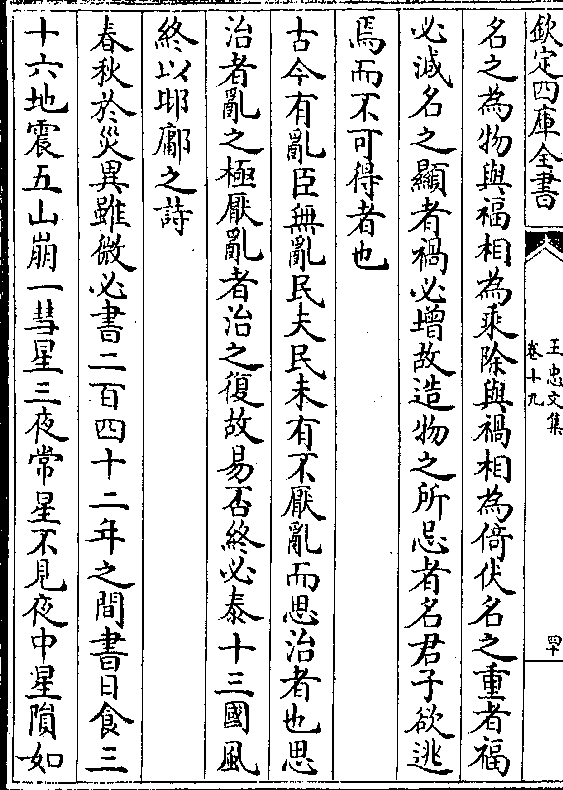 欽定四庫全書
王忠文集
卷十九
四十
名之為物與福相為乘除與禍相為倚伏名之重者福
必減名之顯者禍必增故造物之所忌者名君子欲逃
焉而不可得者也
古今有亂臣無亂民夫民未有不厭亂而思治者也思
治者亂之極厭亂者治之復故易否終必泰十三國風
終以邶鄘之詩
春秋於災異雖微必書二百四十二年之間書日食三
十六地震五山崩一彗星三夜常星不見夜中星隕如